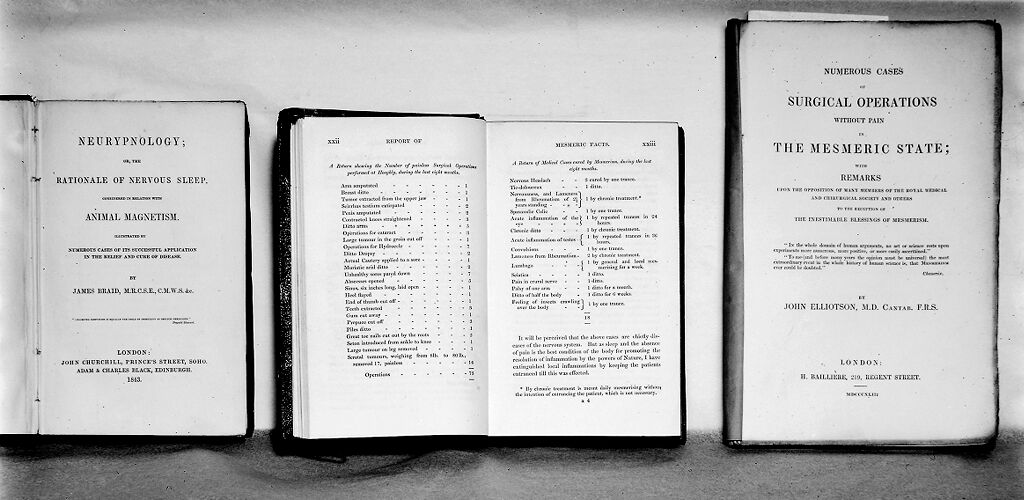 NEURYPNOLOGY;
OR, THE
RATIONALE OF NERVOUS SLEEP,
CONSIDERED IN RELATION WITH
ANIMAL MAGNETISM.
ILLUSTRATED BY
NUMEROUS CASES OF ITS SUCCESSFUL APPLICATION
IN THE RELIEF AND CURE OF DISEASE.
BY
JAMES BRAID, M.R.C.S.E., C.M.W.S. &c.
LONDON:
JOHN CHURCHILL, PRINCE'S STREET, SOHO.
ADAM & CHARLES BLACK, EDINBURGH.
1843.
xxii REPORT OF
A Return showing the Number of painless Surgical Operations
performed at Hooghly, during the last eight months.
Arm amputated - 1
Breast ditto - 1
Tumor extracted from the upper jaw - 1
Scirrhus testium extirpated - 2
Penis amputated - 2
Contracted knees straightened - 3
Ditto arms - 3
Operations for cataract - 3
Large tumour in the groin cut off - 1
Operations for Hydrocele - 7
Ditto Dropsy - 2
Actual Cautery applied to a sore - 1
Muriatic acid ditto - 2
Unhealthy sores pared down - 7
Abscesses opened - 5
Sinus, six inches long, laid open - 1
Heel flayed - 1
End of thumb cut off - 1
Teeth extracted - 3
Gum cut away - 1
Prepuce cut off - 3
Piles ditto - 1
Great toe nails cut out by the roots - 5
Seton introduced from ankle to knee - 1
Large tumour on leg removed - 1
Scrotal tumours, weighing from 8lb. to 80 lbs.,
removed 17, painless - 14
Operations - 73
MESMERIC FACTS. xxiii
A Return of Medical Cases cured by Mesmerism, during the last
eight months.
Nervous Headach - 3 cured by one trance.
Tic-doloureux - 1 ditto.
Nervousness, and Lameness
from Rheumatism of 2½
years standing - 1 by chronic treatment.*
Spasmodic Colic - 1 by one trance.
Acute inflammation of the
eye - 1 by repeated trances in 24
hours.
Chronic ditto - 1 by chronic treatment.
Acute inflammation of testes - 1 by repeated trances in 36
hours.
Convulsions - 1 by one trance.
Lameness from Rheumatism - 2 by chronic treatment.
Lumbago - 1 by general and local mes-
merising for a week.
Sciatica - 1 ditto.
Pain in crural nerve - 1 ditto.
Palsy of one arm - 1 ditto for a month.
Ditto of half the body - 1 ditto for 6 weeks.
Feeling of insects crawling
over the body - 1 by one trance.
18
It will be perceived that the above cases are chiefly dis-
eases of the nervous system. But as sleep and the absence
of pain is the best condition of the body for promoting the
resolution of inflammation by the powers of Nature, I have
extinguished local inflammations by keeping the patients
entranced till this was effected.
* By chronic treatment is meant daily mesmerising without
the intention of entrancing the patient, which is not necessary.
a 4
NUMEROUS CASES
OF
SURGICAL OPERATIONS
WITHOUT PAIN
IN
THE MESMERIC STATE;
WITH
REMARKS
UPON THE OPPOSITION OF MANY MEMBERS OF THE ROYAL MEDICAL
AND CHIRURGICAL SOCIETY AND OTHERS
TO THE RECEPTION OF
THE INESTIMABLE BLESSINGS OF MESMERISM.
"In the whole domain of human arguments, no art or science rests upon
experiments more numerous, more positive, or more easily ascertained."
"To me (and before many years the opinion must be universal) the most
extraordinary event in the whole history of human science is, that Mesmerism
ever could be doubted."
Chenevix.
BY
JOHN ELLIOTSON, M.D. CANTAB. F.R.S.
LONDON:
H. BAILLIÈRE, 219, REGENT STREET.
MDCCCXLIII